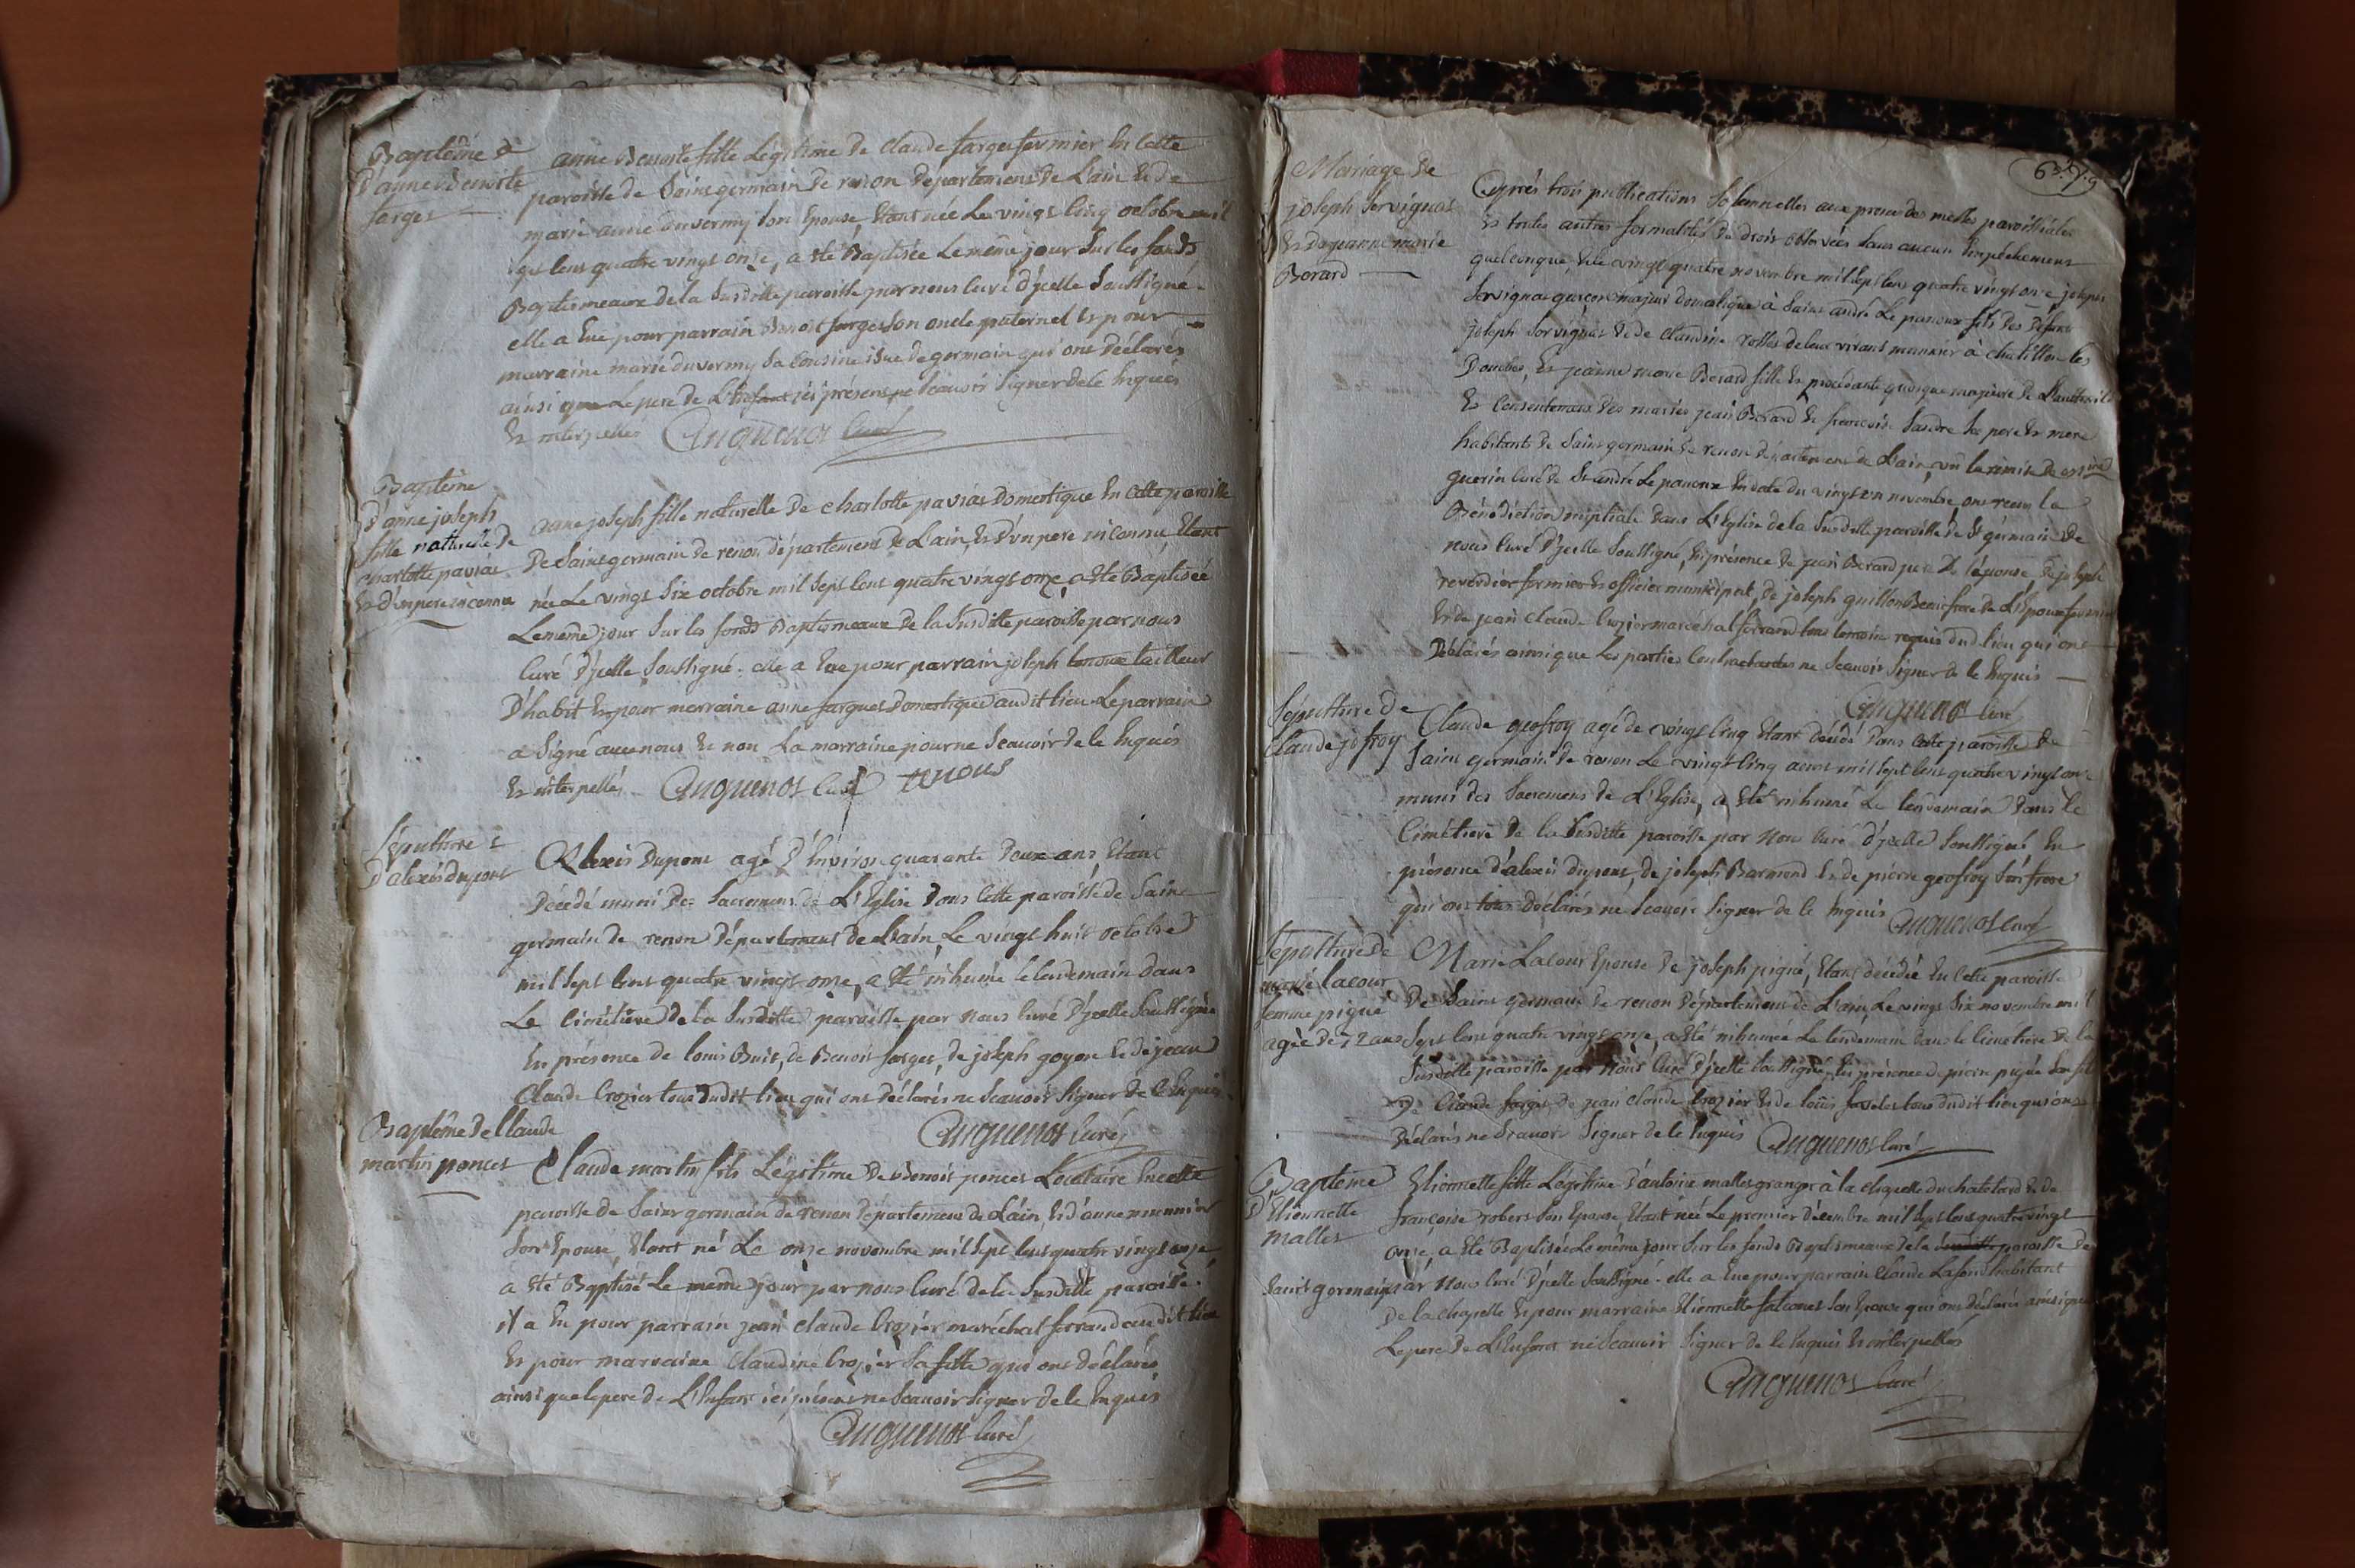 Baptême
D'anne Benoite
farges
anne Benoite fille Légitime de Claude farges fermier En Cette
paroisse de Saint germain de renon département de L'ain Et de
marie anne duvermy Son Epouse, Etant née Le vingt Cinq octobre mil
sept Cens quatre vingt onze, a Eté Baptisée Le même jour Sur les fonds
Baptismeaux de la Susditte paroisse par nous Curé d'ycelle Soussigné.
elle a Eue pour parrain Benoit farges Son oncle paternel Et pour
marraine marie duvermy Sa Cousine issue de germain qui ont Déclarés
ainsi que Le pere de L'Enfant ici présent ne Scavoir Signer De Ce Enquis
Et interpellés Auguenot Curé
Baptême
D'anne joseph
fille naturelle de
charlotte pavias
Et D'un pere inconnu
anne joseph fille naturelle De Charlotte pavias Domestique En Cette paroisse
De Saint germain de renon département de L'ain, Et D'un pere inconnu, Etant
née Le vingt Six octobre mil Sept Cens quatre vingt onze, a Eté Baptisée
Le même jour Sur les fonds Baptismeaux de la Susditte paroisse par nous
Curé D'ycelle Soussigné. elle a Eue pour parrain joseph tenoux tailleur
D'habit Et pour marraine anne fargues Domestique audit lieu Le parrain
a Signé avec nous Et non La marraine pour ne Scavoir De Ce Enquis
Et interpellés. Auguenot Curé tenous
Sépulture
D'alexis dupont
Alexis Dupont agé D'Environ quarante Deux ans Etant
Décédé muni Des Sacremens de L'Eglise Dans Cette paroisse de Saint
germain de renon Département de L'ain, Le vingt huit octobre
mil Sept Cens quatre vingt onze, a Eté inhumé le lendemain dans
Le Cimetiere de la Susditte paroisse par nous Curé D'ycelle Soussigné
En présence de louis Buis, de Benoit farges, de joseph goyon Et de jean
Claude Crozier tous Dudit lieu qui ont Déclarés ne Scavoir Signer de Ce Enquis
Auguenot Curé
Baptême de Claude
martin poncet
Claude martin fils Légitime de Benoit poncet Locataire En Cette
paroisse de Saint germain de renon Département de L'ain, Et D'anne meunier
Son Epouse, Etant né Le onze novembre mil Sept Cens quatre vingt onze
a Eté Baptisé Le même jour par nous Curé de la Susditte paroisse.
il a Eu pour parrain jean Claude Crozier maréchal ferrand audit lieu
Et pour marraine Claudine Crozier Sa fille qui ont Déclarés
ainsi que le pere de L'Enfant ici présent ne Scavoir Signer de Ce Enquis
Auguenot Curé
Mariage de
joseph Servignat
Et de jeanne marie
Berard
Après trois publications Solemnelles aux prones des messes paroissiales
Et toutes autres formalités de droit observées Sans aucun Empêchement
quelconque, Et le vingt quatre novembre mil Sept Cens quatre vingt onze joseph
Servignat garçon majeur domestique à Saint andré Le panoux fils Des Défunts
joseph Servignat Et de Claudine de leur vivant meunier à chatillon les
Dombes, Et jeanne marie Berard fille Et procédante quoique majeure de L'authorité
Et Consentement Des mariés jean Berard Et francoise Sandre Ses pere Et mere
habitants de Saint germain de renon département de L'ain, vu la remise de
guerin Curé de St andré Le panoux En date du vingt un novembre, ont recu la
Bénédiction nuptiale Dans L'Eglise de la Susditte paroisse de St germain De
nous Curé D'ycelle Soussigné, En présence de jean Berard pere De l'épouse, De joseph
reverdier fermier Et officier municipal, de joseph guillon Beau frere de L'Epouse fermier
Et de jean Claude Crozier maréchal ferrand tous temoins requis dud. lieu qui ont
Déclarés ainsi que Les parties Contractantes ne Scavoir Signer de Ce Enquis
Auguenot Curé
Sépulture de
Claude jofroy
Claude geofroy agé de vingt Cinq Etant décédé Dans Cette paroisse de
Saint germain de renon Le vingt Cinq mil Sept Cens quatre vingt onze
muni des Sacremens de L'Eglise, a Eté inhumé Le lendemain Dans le
Cimétiere De la Susditte paroisse par Nous Curé D'ycelle Soussigné En
présence d'alexis dupont, de joseph Barmond Et de pierre geofroy Son frere
qui ont tous déclarés ne Scavoir Signer de Ce Enquis Auguenot Curé
Sépulture de
marie lacour
femme pigné
agée de 72 ans
Marie Lacour Epouse De joseph pigné, Etant décédée En Cette paroisse
De Saint germain de renon Département de L'ain, Le vingt Six novembre mil
Sept Cens quatre vingt onze, a Eté inhumée Le lendemain dans le Cimetiere De la
Susditte paroisse par Nous Curé D'ycelle Soussigné, En présence de pierre pigné Son fils
De Claude farges De jean Claude Crozier Et de louis tous dudit lieu qui ont
Déclarés ne Scavoir Signer de Ce Enquis Auguenot Curé
Baptême
D'Etiennette
malles
Etiennette fille Légitime D'antoine malles granger à la chapelle du chatelard Et de
françoise robert Son Epouse, Etant née Le premier décembre mil Sept Cens quatre vingt
onze, a Eté Baptisée Le même jour Sur les fonds Baptismeaux de la Susditte paroisse De
Saint germain par Nous Curé D'ycelle Soussigné. elle a Eue pour parrain Claude Lafond habitant
De la chapelle Et pour marraine Etiennette falconet Son Epouse qui ont Déclarés ainsi que
Le pere De L'Enfant ne Scavoir Signer de Ce Enquis Et interpellés
Auguenot Curé